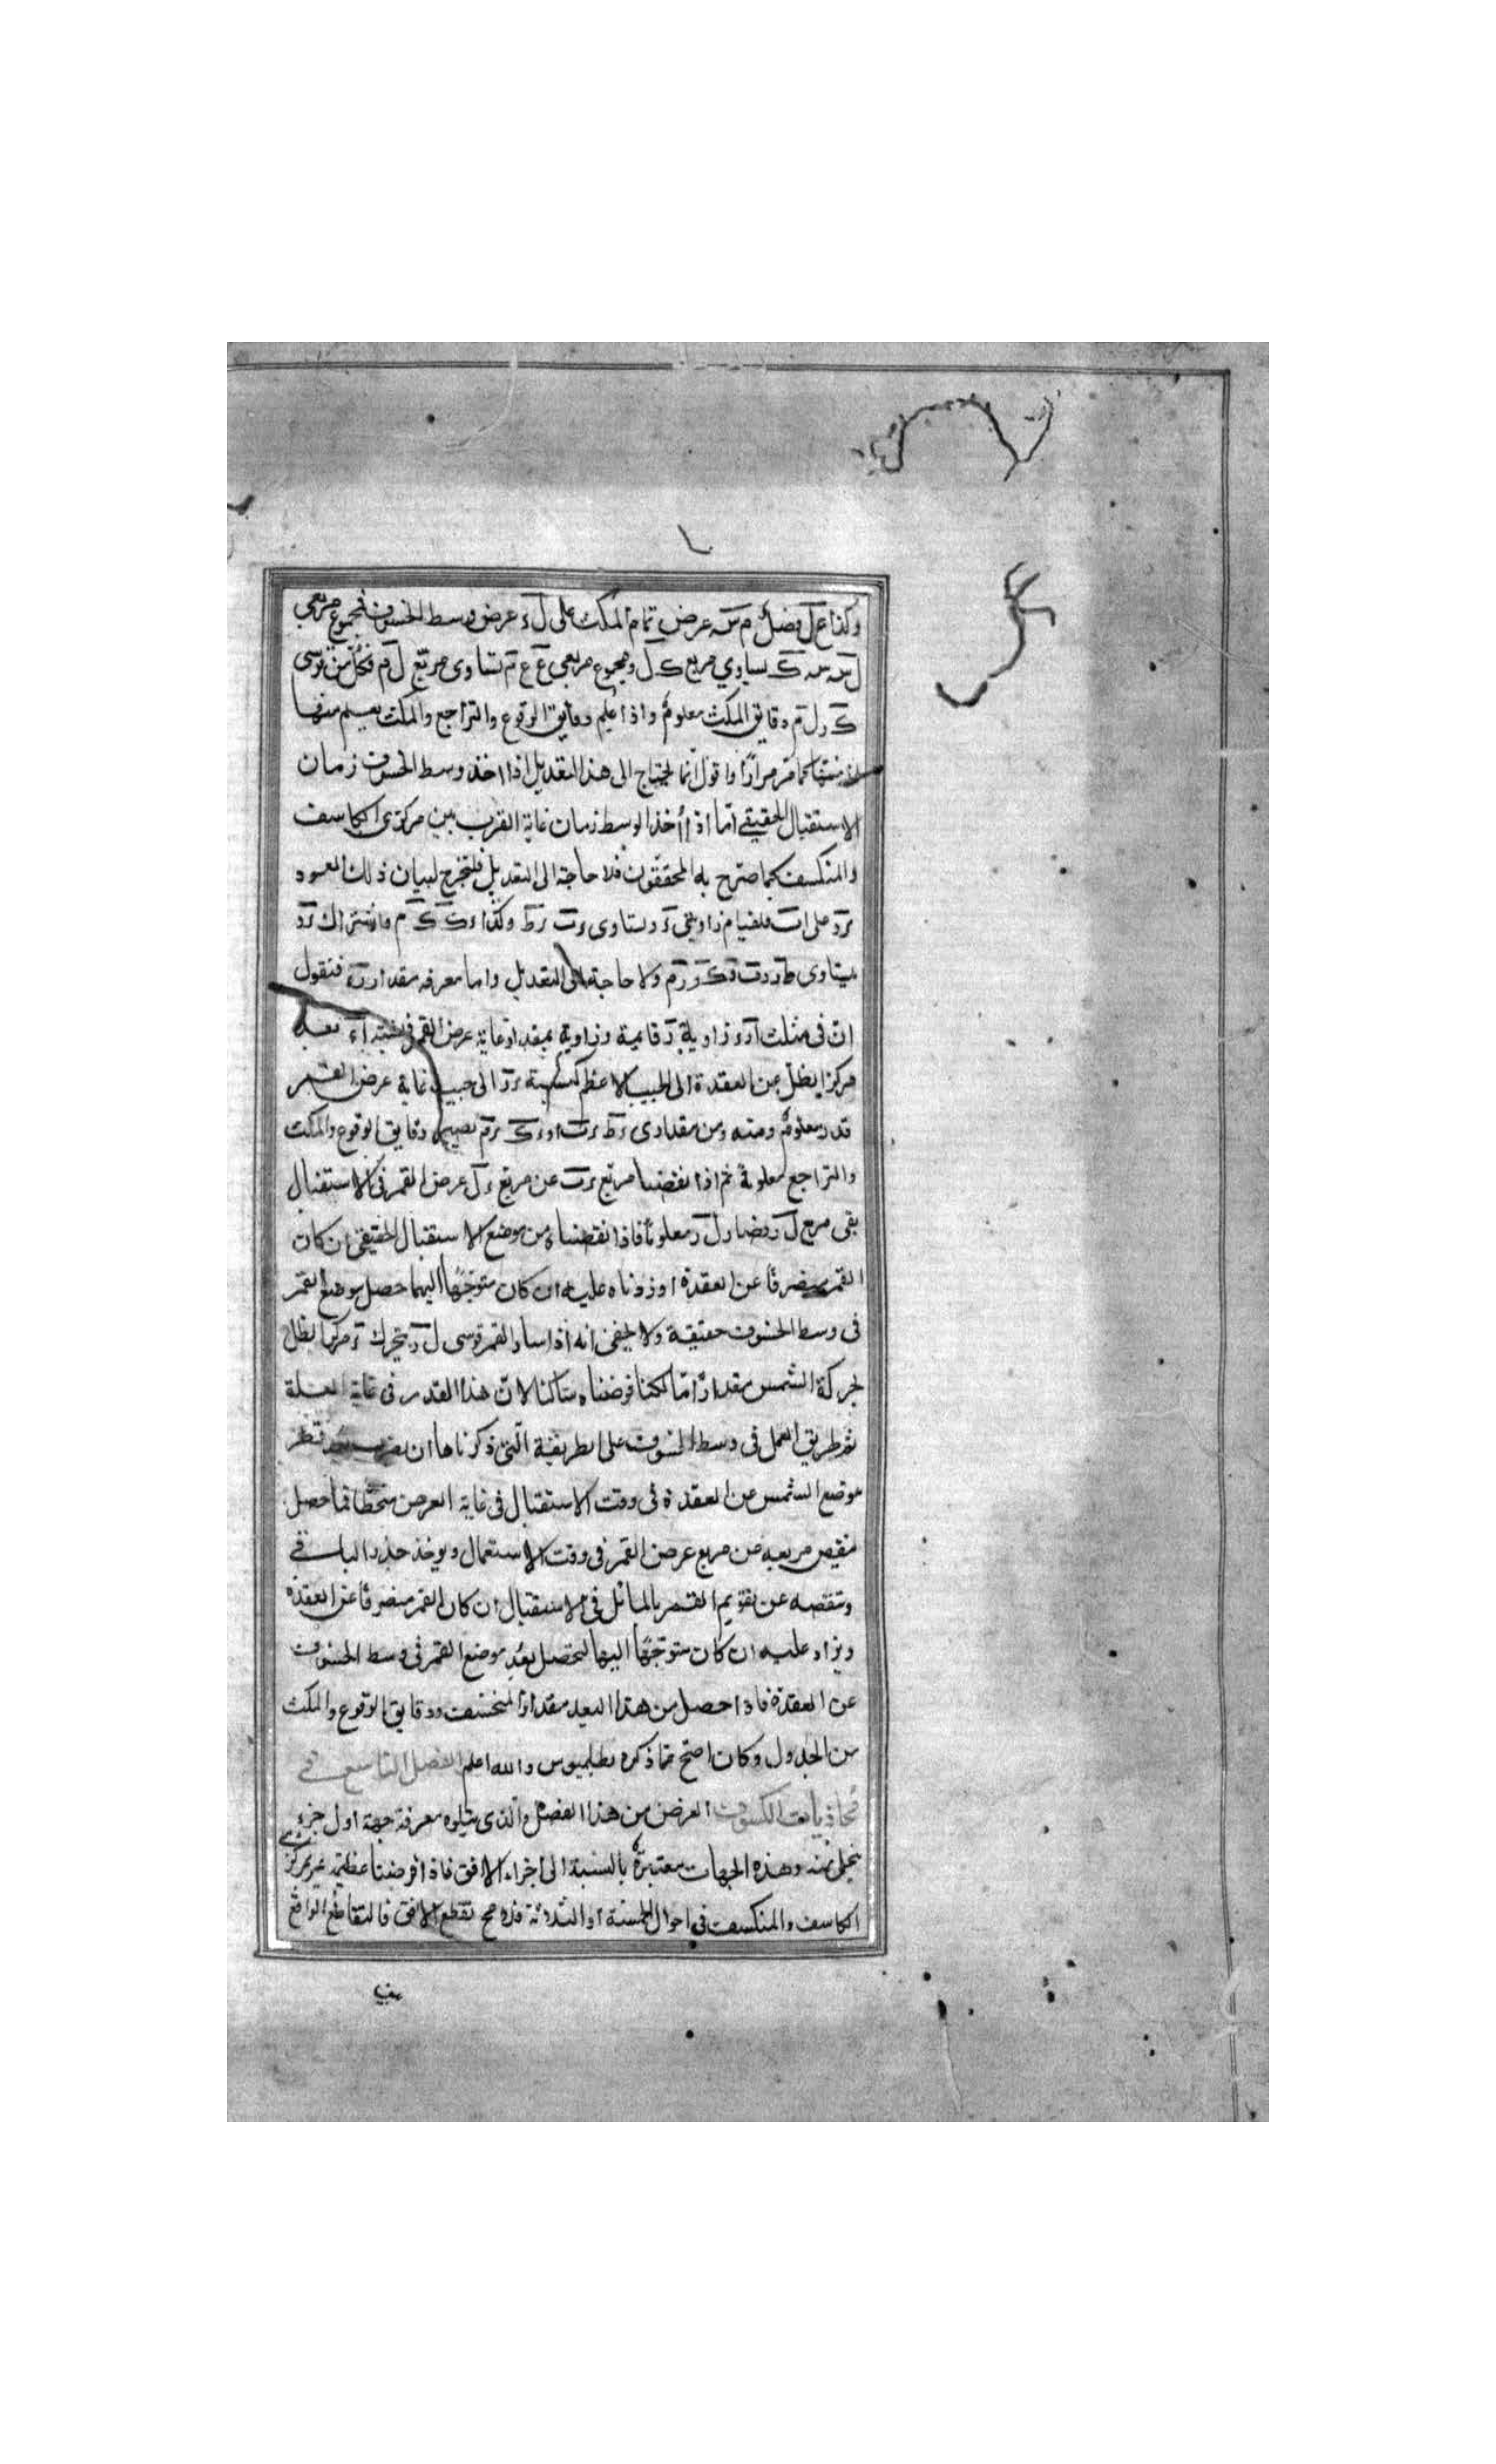 وكذا ع ل فضل م س عرض تمام المكث على ل ء عرض وسط الخسوف فمجموع مربعي
ل س س ك يساوي مربع ك ل ومجموع مربعي ع ع م تساوى مربع ل م فكل من قوسى
ك ل ل م دقايق المكث معلوم واذا علم دقايق الوقوع والتراجع والمكث يعلم منها
ازمنتها كما مر مرارًا واقول انما يحتاج الى هذا التعديل اذا اخذ وسط الخسوف زمان
الاستقبال الحقيقي امّا اذا أخذ الوسط زمان غاية القرب بين مركزى الكاسف
والمنكسف كما صرّح به المحققون فلا حاجة الى التعديل فلنخرج لبيان ذلك العمود
ء ر على ا ب فلقيام زاويتى ر وتساوى ء ب ء ط وكذا ء ك ء م واشتراك ء ر
يتساوى ط ر ر ب و ك ر ر م ولا حاجة الى التعديل واما معرفه مقدار ر ء فنقول
انّ فى مثلث ا ر ء زاوية ر قايمة وزاوية بمقدار غاية عرض القمر فنسبة ا ء بعد
مركز الظل عن العقدة الى الجيب الاعظم كنسبة ء ر الى جيب غاية عرض القمر
قدر معلوم ومنه ومن مقدارى ء ط ء ب او ء ك ء م يصير دقايق الوقوع والمكث
والتراجع معلومة ثم اذا نقضنا مربع ء ر عن مربع ء ل عرض القمر فى الاستقبال
بقى مربع ل ر فصار ل ر معلومًا فاذا نقصناه من موضع الاستقبال الحقيقى ان كان
القمر منصرفًا عن العقدة او زدناه عليه ان كان متوجّهًا اليها حصل موضع القمر
فى وسط الخسوف حقيقة ولا يخفى انه اذا سار القمر قوس ل ر يتحرك ء مركز الظل
بحركة الشمس مقدارًا ما لكنا فرضناه ساكنا لانّ هذا القدر فى غاية القلة
ثم طريق العمل فى وسط الخسوف على الطريقة التى ذكرناها ان يضرب بعد نظر
موضع الشمس عن العقدة فى وقت الاستقبال فى غاية العرض منحطًا فما حصل
ينقص مربعه من مربع عرض القمر فى وقت الاستعمال ويوخذ جذر الباقي
وتنقصه عن تقويم القمر بالمائل فى الاستقبال ان كان القمر منصرفًا عن العقدة
ويزاد عليه ان كان متوجّهًا اليها لتحصل بُعد موضع القمر فى وسط الخسوف
عن العقدة فاذا حصل من هذا البعد مقدار المنخسف ودقايق الوقوع والمكث
من الجدول وكان اصح مما ذكره بطلميوس والله اعلم الفصل التاسع في
محاذيات الكسوف الغرض من هذا الفصل والذى يتلوه معرفة جهة اول جزء
ينجلى منه وهذه الجهات معتبرة بالنسبة الى اجزاء الافق فاذا فرضنا عظيمة تمر بمركزي
الكاسف والمنكسف فى احوال الخمسة او الثلاثة فلا مح تقطع الافق فالتقاطع الواقع